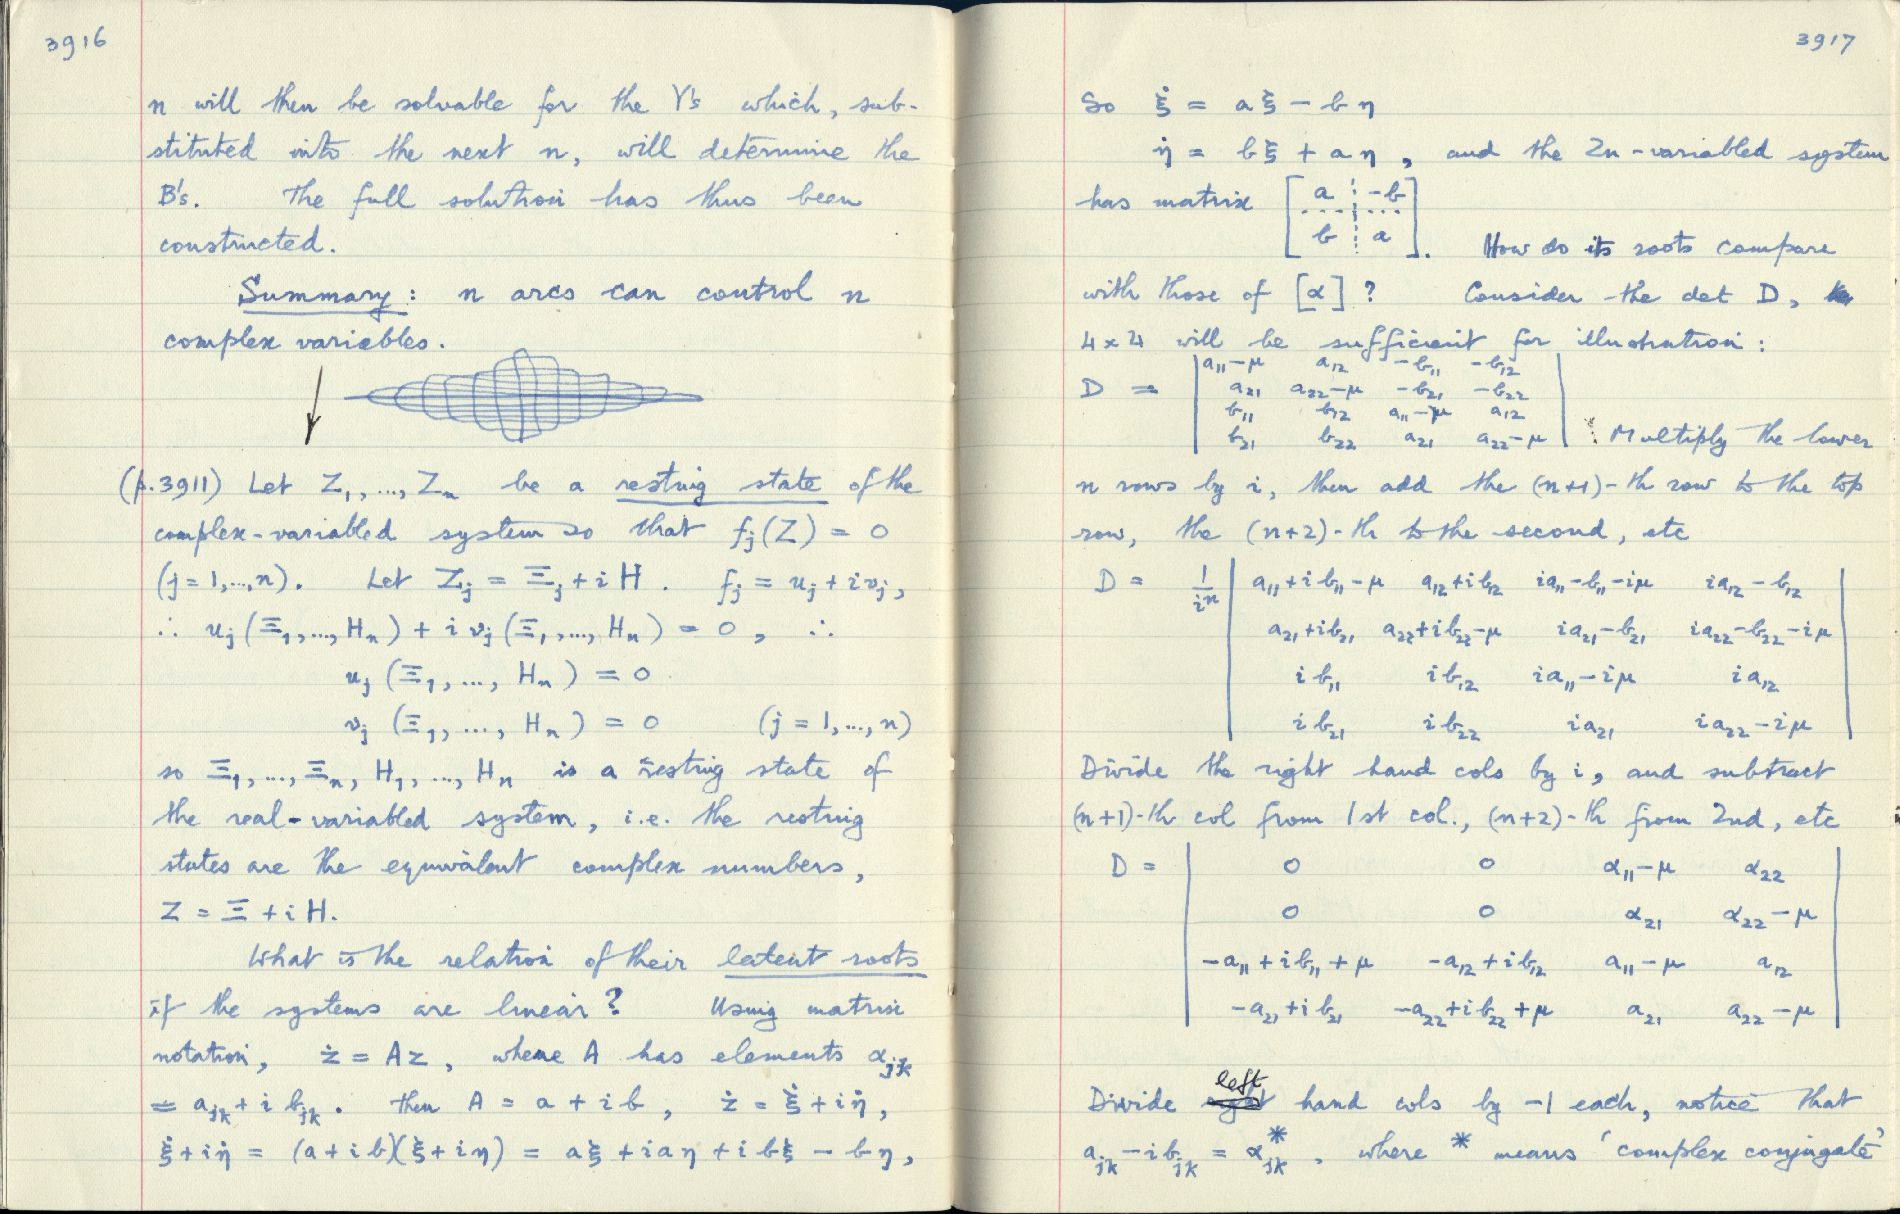 3916
n will then be solvable for the Y's which, sub-
stituted into the next n, will determine the
B's. The full solution has thus been
constructed.
Summary: n arcs can control n
complex variables.
(p.3911) Let Z₁, ..., Zₙ be a resting state of the
complex-variabled system so that fⱼ(Z) = 0
(j = 1, ..., n). Let Zⱼ = Ξⱼ + i H. fⱼ = uⱼ + i vⱼ,
∴ uⱼ (Ξ₁, ..., Hₙ) + i vⱼ (Ξ₁, ..., Hₙ) = 0, ∴
uⱼ (Ξ₁, ..., Hₙ) = 0
vⱼ (Ξ₁, ..., Hₙ) = 0 (j = 1, ..., n)
so Ξ₁, ..., Ξₙ, H₁, ..., Hₙ is a resting state of
the real-variabled system, i.e. the resting
states are the equivalent complex numbers,
Z = Ξ + i H.
What is the relation of their latent roots
if the systems are linear? Using matrix
notation, ż = Az, where A has elements αⱼₖ
= aⱼₖ + i bⱼₖ. Then A = a + i b, ż = ξ̇ + i η̇,
ξ̇ + i η̇ = (a + i b)(ξ + i η) = aξ + i aη + i bξ − bη,
3917
So ξ̇ = aξ − bη
η̇ = bξ + aη, and the 2n-variabled system
has matrix [ a −b
b a ]. How do its roots compare
with those of [α]? Consider the det D,
4×4 will be sufficient for illustration:
D = | a₁₁−μ a₁₂ −b₁₁ −b₁₂
a₂₁ a₂₂−μ −b₂₁ −b₂₂
b₁₁ b₁₂ a₁₁−μ a₁₂
b₂₁ b₂₂ a₂₁ a₂₂−μ | . Multiply the lower
n rows by i, then add the (n+1)-th row to the top
row, the (n+2)-th to the second, etc
D = 1/iⁿ | a₁₁+i b₁₁−μ a₁₂+i b₁₂ i a₁₁−b₁₁−iμ i a₁₂−b₁₂
a₂₁+i b₂₁ a₂₂+i b₂₂−μ i a₂₁−b₂₁ i a₂₂−b₂₂−iμ
i b₁₁ i b₁₂ i a₁₁−iμ i a₁₂
i b₂₁ i b₂₂ i a₂₁ i a₂₂−iμ |
Divide the right hand cols by i, and subtract
(n+1)-th col from 1st col., (n+2)-th from 2nd, etc
D = | 0 0 α₁₁−μ α₂₂
0 0 α₂₁ α₂₂−μ
−a₁₁+i b₁₁+μ −a₁₂+i b₁₂ a₁₁−μ a₁₂
−a₂₁+i b₂₁ −a₂₂+i b₂₂+μ a₂₁ a₂₂−μ |
Divide left hand cols by −1 each, notice that
aⱼₖ − i bⱼₖ = α*ⱼₖ, where * means 'complex conjugate'